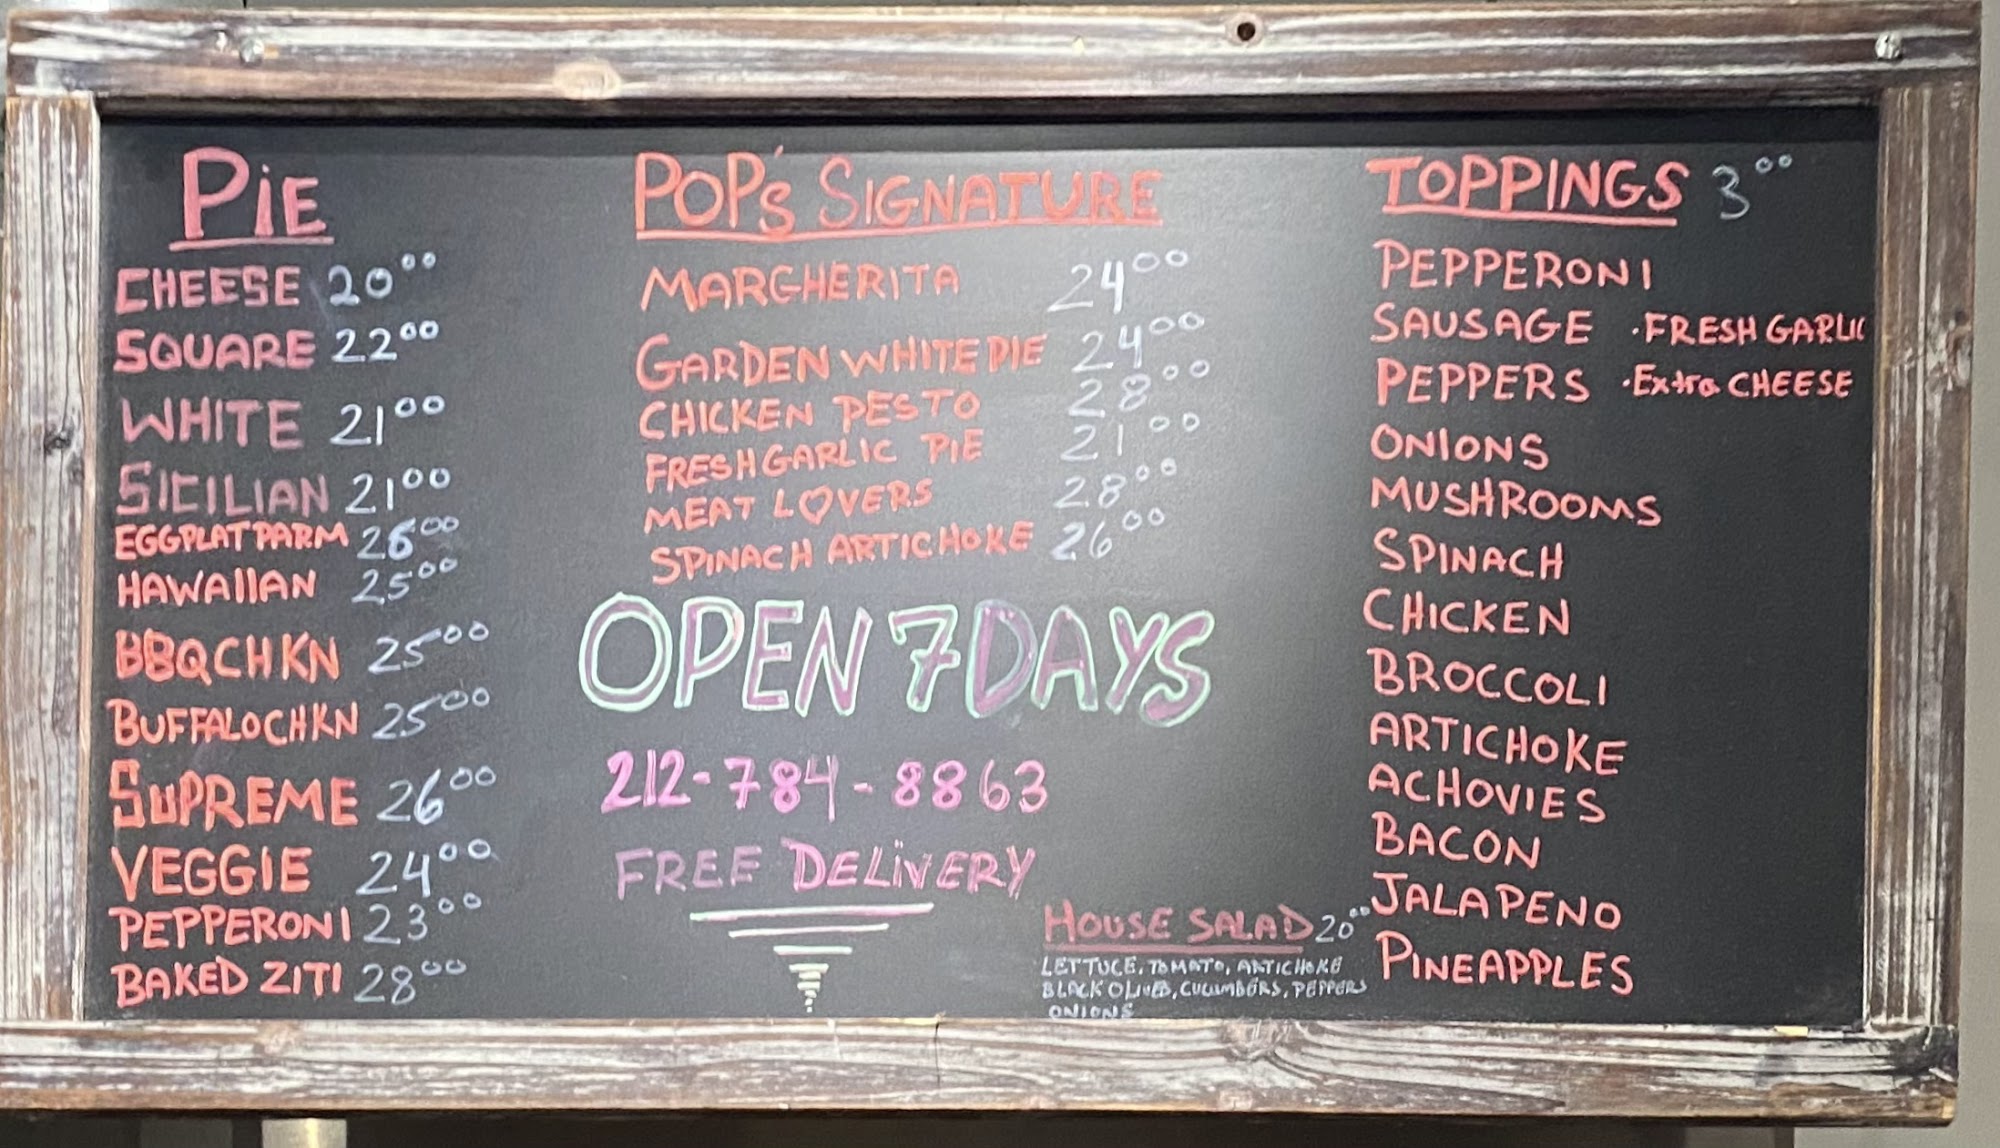 PiE
CHEESE 20⁰⁰
SQUARE 22⁰⁰
WHITE 21⁰⁰
SICILIAN 21⁰⁰
EGGPLAT PARM 26⁰⁰
HAWAIIAN 25⁰⁰
BBQ CHKN 25⁰⁰
BUFFALO CHKN 25⁰⁰
SUPREME 26⁰⁰
VEGGIE 24⁰⁰
PEPPERONI 23⁰⁰
BAKED ZITI 28⁰⁰
POP's SIGNATURE
MARGHERITA 24⁰⁰
GARDEN WHITE PIE 24⁰⁰
CHICKEN PESTO 28⁰⁰
FRESH GARLIC PIE 21⁰⁰
MEAT LOVERS 28⁰⁰
SPINACH ARTICHOKE 26⁰⁰
OPEN 7 DAYS
212-784-8863
FREE DELiVERY
HOUSE SALAD 20⁰⁰
LETTUCE, TOMATO, ARTICHOKE
BLACK OLIVES, CUCUMBERS, PEPPERS
ONIONS
TOPPINGS 3⁰⁰
PEPPERONI
SAUSAGE ·FRESH GARLIC
PEPPERS ·Extra CHEESE
ONIONS
MUSHROOMS
SPINACH
CHICKEN
BROCCOLI
ARTICHOKE
ACHOVIES
BACON
JALAPENO
PINEAPPLES